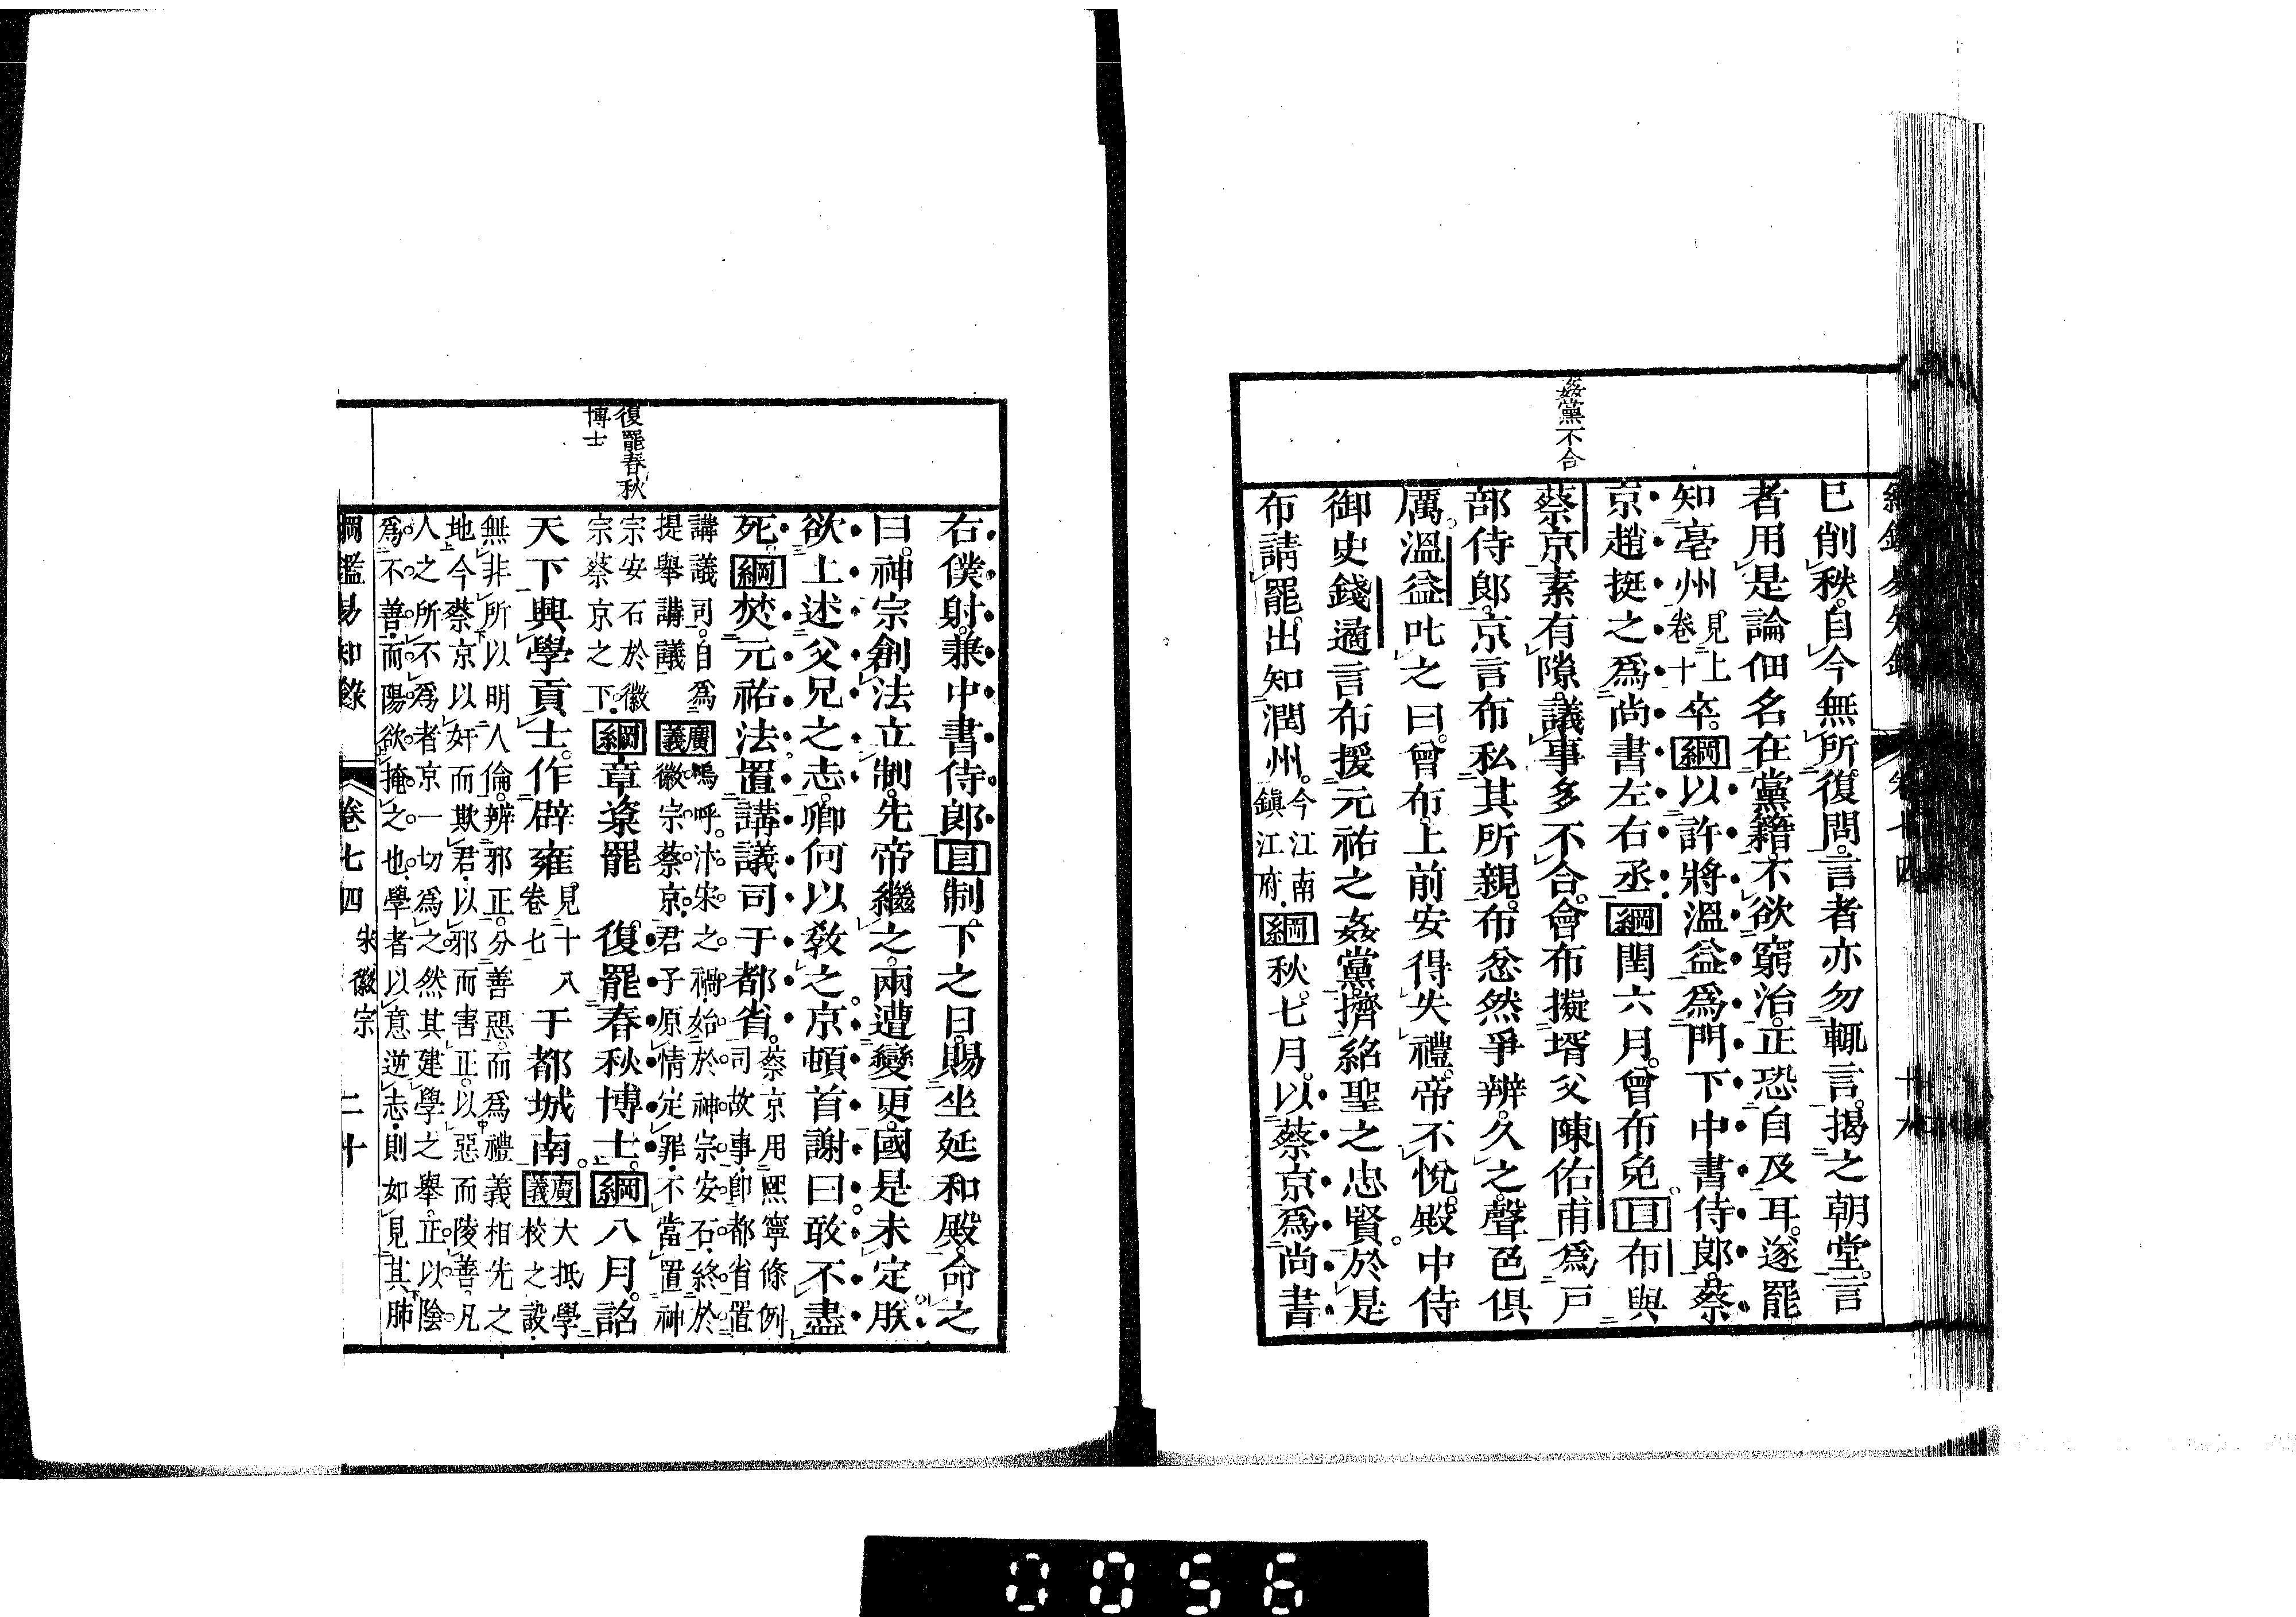 姦黨不合
已削秩自今無所復問言者亦勿輒言揭之朝堂言
者用是論佃名在黨籍不欲窮治正恐自及耳遂罷
知亳州見上卷十卒綱以許將溫益爲門下中書侍郎蔡
京趙挺之爲尚書左右丞綱閏六月曾布免目布與
蔡京素有隙議事多不合會布擬壻父陳佑甫爲戸
部侍郎京言布私其所親布忿然爭辨久之聲色俱
厲溫益叱之曰曾布上前安得失禮帝不悅殿中侍
御史錢遹言布援元祐之姦黨擠紹聖之忠賢於是
布請罷出知潤州今江南鎭江府綱秋七月以蔡京爲尚書
復罷春秋
博士
右僕射兼中書侍郎目制下之日賜坐延和殿命之
曰神宗創法立制先帝繼之兩遭變更國是未定朕
欲上述父兄之志卿何以敎之京頓首謝曰敢不盡
死綱焚元祐法置講議司于都省蔡京用熙寧條例司故事卽都省置
講議司自爲提舉講議廣義嗚呼汴宋之禍始於神宗安石終於徽宗蔡京君子原情定罪不當置神
宗安石於徽宗蔡京之下綱章楶罷 復罷春秋博士綱八月詔
天下興學貢士作辟雍見十八卷七于都城南廣義大抵學校之設
無非所以明人倫辨邪正分善惡而爲禮義相先之
地今蔡京以奸而欺君以邪而害正以惡而陵善凡
人之所不爲者京一切爲之然其建學之舉正以陰
爲不善而陽欲掩之也學者以意逆志則如見其肺
綱鑑易知錄 卷七四 宋徽宗 二十
0056